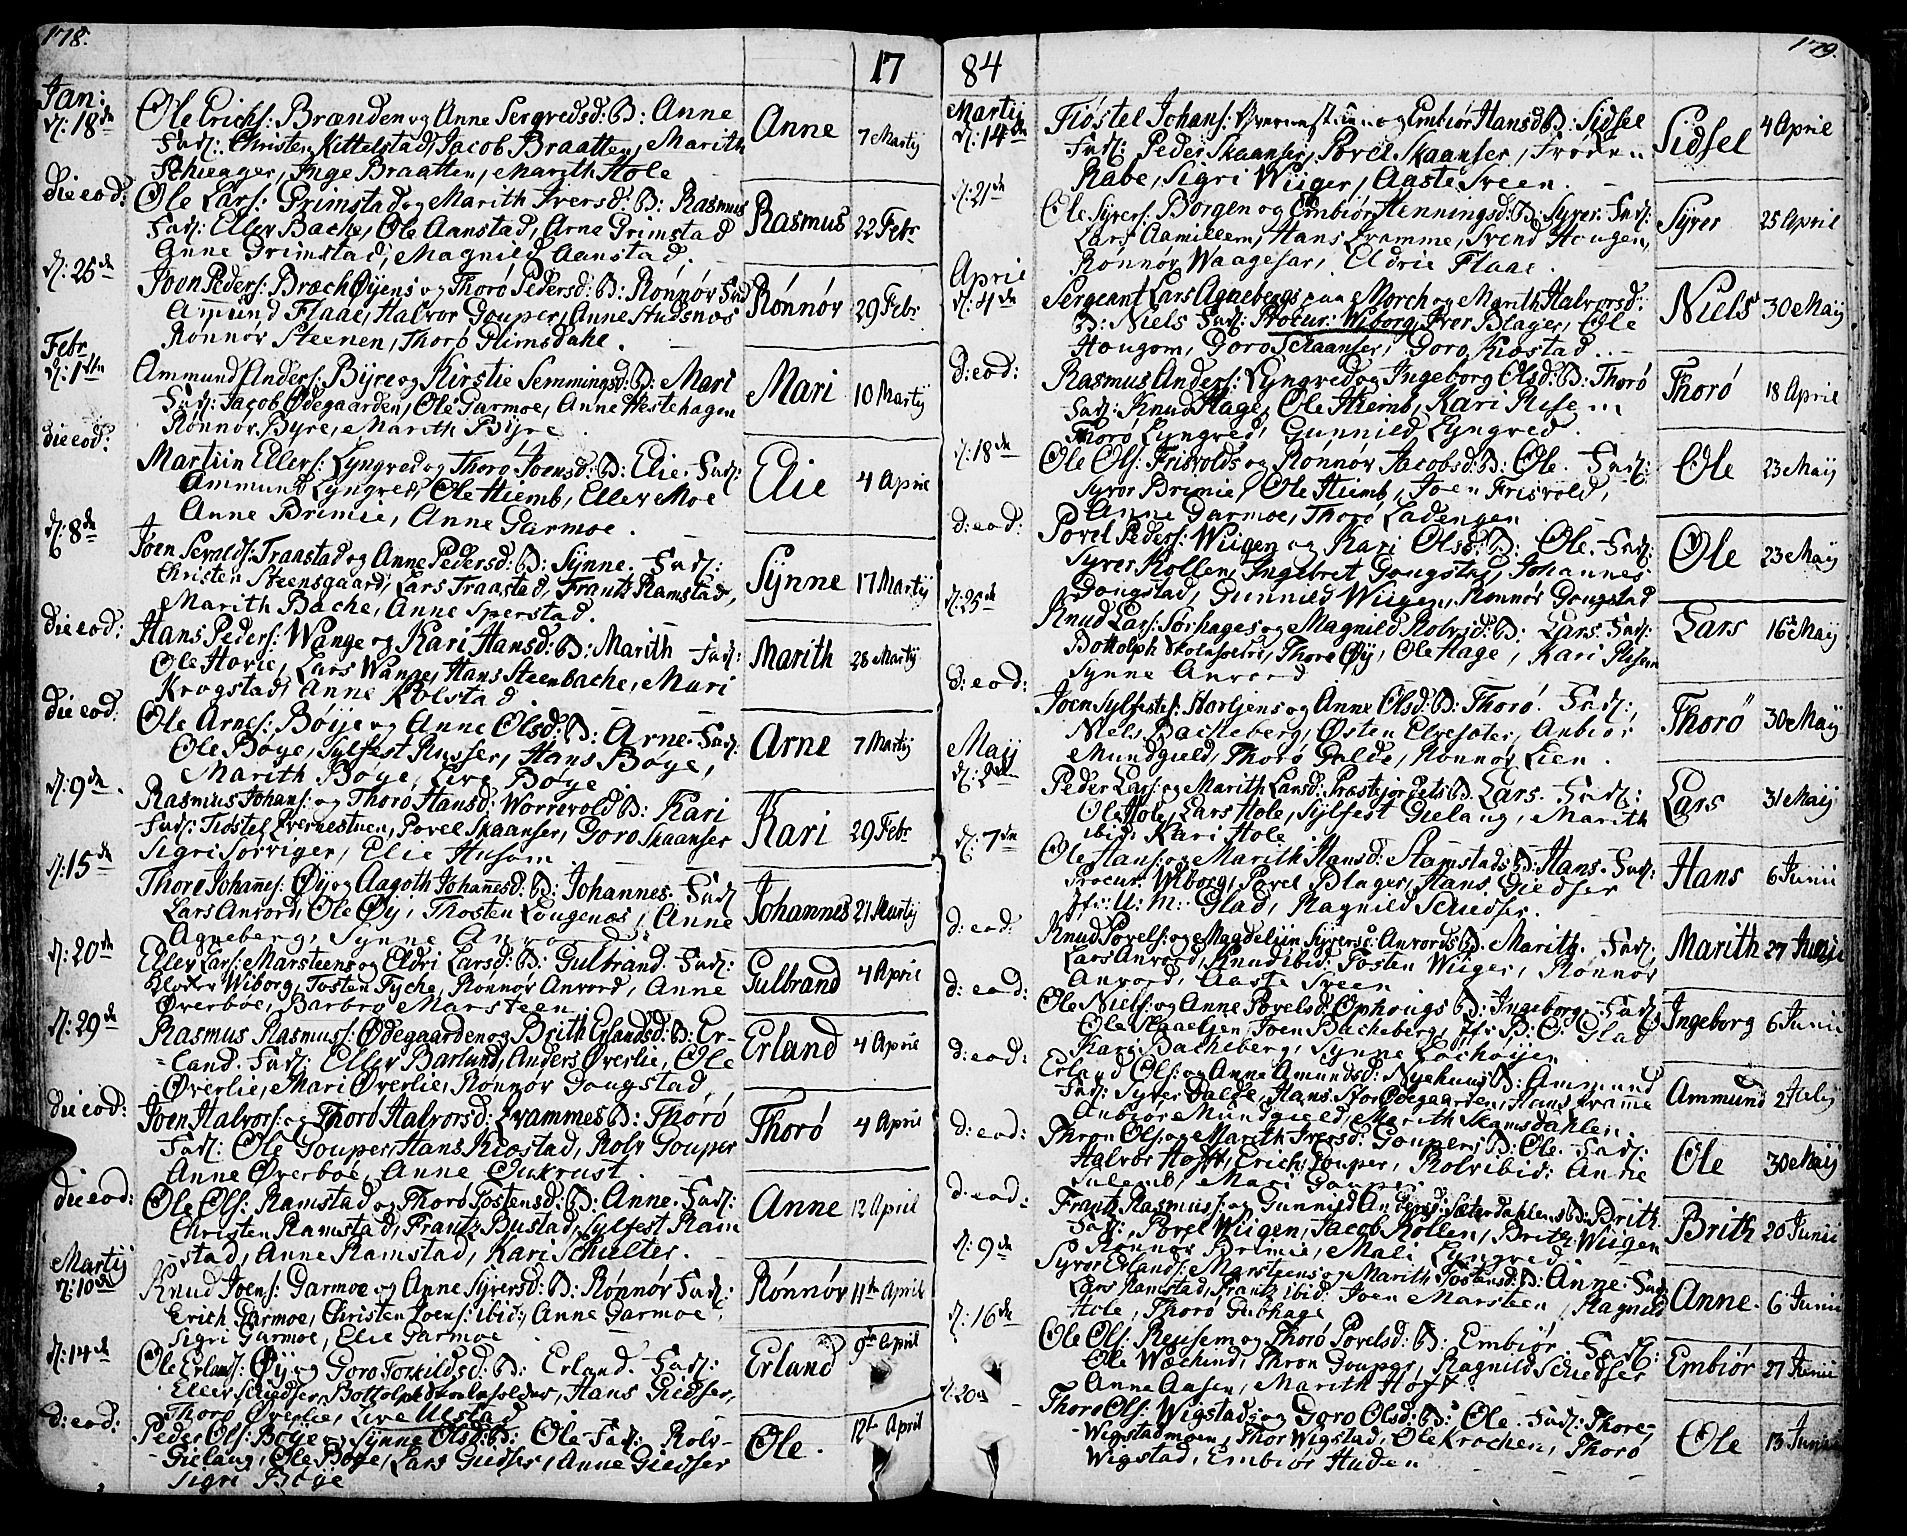 178.
17
Jan:
d: 18de
Ole Erichs: Brænden og Anne Sergvedsd: B: Anne
Fad: Christen Kittelstad, Jacob Braatten, Marith
Schieager, Inge Braatten, Marith Hole
Anne
7 Martij
die eod:
Ole Lars: Grimstad og Marith Iversd: B: Rasmus
Fad: Eller Bache, Ole Aanstad, Arne Grimstad
Anne Grimstad, Magnild Aanstad.
Rasmus
22 Febr
d: 25de
Joen Peders: BræchØyens og Thorø Pedersd: B: Rønnør Fad
Amund Flaae, Halvor Gouper, Anne
Rønnør Steenen, Thorø Glimsdahl.
Rønnør
29 Febr
Febr
d: 1ste
Ammund Anders: Byre og Kirstie Semmingsd: B: Mari
Fad: Jacob Ødegaarden, Ole Garmoe, Anne Westehagen
Rønnør Byre, Marith Byre.
Mari
10 Martij
die eod:
Martiin Ellers: Lyngved og Thorø Joensd: B: Elie. Fad:
Ammund Lyngved, Ole Hiemb, Eller Moe
Anne Brimie, Anne Garmoe.
Elie
4 April
d: 8de
Joen Traastad og Anne Pedersd: B: Synne. Fad:
Christen Steensgaard, Lars Traastad, Frantz Ramstad,
Marith Bache, Anne Sperstad.
Synne
17 Martij
die eod:
Hans Peders: Wange og Kari Hansd: B: Marith Fad:
Ole Hovie, Lars Wange, Hans Steenbache, Mari
Krogstad, Anne Kolstad
Marith
28 Martij
die eod:
Ole Arnes: Bøye og Anne Olsd: B: Arne. Fad:
Ole Bøye, Sylfest Russer, Hans Bøye,
Marith Bøye, Live Bøye.
Arne
7 Martij
d: 9de.
Rasmus Johans: og Thorø Hansd: Worrevold B: Kari
Fad: Tiøstel Qvernestuen, Povel Skaanser, Goro Skaanser
Sigri Sørriger, Elie Husom
Kari
29 Febr
d: 15de
Thore Johañes: Øy og Aagoth Johañesd: B: Johannes. Fad
Lars Anvord, Ole Øy, Thosten Lougenæs, Anne
Agneberg, Synne Anvord.
Johannes
21 Martij
d: 20de
Eller Lars: Marsteens og Eldri Larsd: B: Gulbrand. Fad:
Wiborg, Tosten Tyche, Rønnør Anvord, Anne
Øverboe, Barbro Marsteen
Gulbrand
4 April
d: 29de
Rasmus Rasmuss: Ødegaarden og Brith Erlandsd: B: Er-
-land. Fad: Eller Barlund, Anders Øverlie, Ole
Øverlie, Mari Øverlie, Rønnør Dougstad.
Erland
4 April
die eod:
Joen Halvors: og Thorø Halvorsd: Qvammes B: Thorø
Fad: Ole Gouper, Hans Kiøstad, Rolv Gouper
Anne Øverboe, Anne Qukrust.
Thorø
4 April
die eod:
Ole Ols: Ramstad og Thorø Tostensd: B: Anne. Fad:
Christen Ramstad, Frantz Bustad, Sylfest Ram
-stad, Anne Ramstad, Kari Schulter.
Anne
12 April
Martij
d: 10de
Knud Joens: Garmoe og Anne Syversd: B: Rønnør Fad:
Erich Garmoe, Christen Joens: ibid: Anne Garmoe,
Sigri Garmoe, Elie Garmoe
Rønnør
11te April
d: 14de
Ole Erlands: Øy og Goro Torkildsd: B: Erland. Fad:
Eller Schiedser, Bottolph, Hans Giedser,
Thorø Øverlie, Live Ulstad
Erland
9de April
d: eod:
Peder Ols: Bøye og Synne Olsd: B: Ole. Fad: Rolv-
-Gielaug, Ole Bøye, Lars Giedser, Anne Giedser
Sigri Bøye
Ole.
12te April
84
179.
Martij
d: 14de
Tiøstel Johans: Qvernestuen og Embiør Hansd B: Sidsel
Fad: Peder Skaanser, Povel Skaanser,
Rabe, Sigri Wiiger, Aaste Sveen.
Sidsel
4 April
d: 21de
Ole Syvers: Borgen og Embiør Henningsd: B: Syver. Fad:
Lars Aamillem, Hans Qvamme, Svend Hougen,
Rønnør Waagesar, Eldrie Flaae.
Syver
25 April
April
d: 4de
Sergeant Lars Agnebergs paa Morch og Marith Halvorsd:
B: Niels Fad: Procur: Wiborg, Iver Blager, Ole
Hougom, Goro Schaanser, Goro Kiøstad.
Niels
30 Maij
d: eod:
Rasmus Anders: Lyngved og Ingeborg Olsd: B: Thorø
Fad: Knud Hage, Ole Hiemb, Kari Risem
Thorø Lyngved, Gunnild Lyngved.
Thorø
18 April
d: 18de
Ole Ols: Frisvolds og Rønnør Jacobsd: B: Ole. Fad:
Syver Brimie, Ole Hiemb, Joen Frisvold,
Anne Garmoe, Thorø Ladengen
Ole
23 Maij
d: eod:
Povel Peders: Wiigen og Kari Olsd: B: Ole. Fad:
Syver Kollen, Ingebret Gougstad, Johannes
Dougstad, Gunnild Wiigen, Rønnør Gougstad
Ole
23 Maij
d: 25de
Knud Lars: Sørhages og Magnild Rolvsd: B: Lars. Fad:
Bottolph, Thore Øy, Ole Hage, Kari Risem
Synne Anvord
Lars
16 Maij
d: eod:
Joen Sylfests: Stortjens og Anne Olsd: B: Thorø. Fad:,
Niels Bacheberg, Østen Elvesæter, Anbiør
Mundgield, Thorø Galde, Rønnør Lien.
Thorø
30 Maij
Maij
d: 2de
Peder Lars: og Marith Larsd: Præstejordets B: Lars. Fad:
Ole Hole, Lars Hole, Sylfest Gielaug, Marith
ibid: Kari Hole.
Lars
31 Maij
d: 7de
Ole Hans: og Marith Hansd: Stamstads B: Hans. Fad:
Procur: Wiborg, Povel Blager, Hans Giedser
U: M: Glad, Ragnild Schiedser.
Hans
6 Junii
d: eod:
Knud Povels: og Magdeliin Syversd: Anvords B: Marith. Fad:
Lars Anvord, Knud ibid: Tosten Wiiger, Rønnør
Anvord, Aaste Sveen
Marith
27
d: eod:
Ole Niels: og Anne Povelsd: Ophougs B: Ingeborg. Fad:
Ole Skaansen, Joen Bacheberg, B: C: Glad
Kari Bacheberg, Synne
Ingeborg
6 Junii
d: eod:
Erland Ols: og Anne Amundsd: Nyehuus B: Ammund
Fad: Syver Galde, Hans Stor Ødegaarden, Hans Qvamme
Anbiør Mundgield, Marith Skamsdahlen.
Ammund
2
d: eod:
Thron Ols: og Marith Iversd: Goupers B: Ole. Fad:
Halvor Hoft, Erich Gouper, Rolv ibid: Anne
Sulemb, Mari Gouper
Ole
30 Maij
d: eod:
Frantz Rasmus: og Gunnild Andersd: Sæterdahlens B: Brith.
Fad: Povel Wiigen, Jacob Kollen, Brith Wiigen
Rønnør Brimie, Mali Lyngved.
Brith
20 Junii
d: 9de
Syver Erlands: Marsteens og Marith Tostensd: B: Anne. Fad
Lars Ramstad, Frantz ibid: Joen Marsteen, Magnild
Hole, Thorø Gubhage
Anne.
6 Junii
d: 16de
Ole Ols: Reusem og Thorø Povelsd: B: Embiør. Fad:
Ole Wæchind, Thron Gouper, Ragnild Schiedser
Anne Aasen, Marith Hoft.
Embiør
27 Junii
d: 20de
Thore Ols: Wigstads og Goro Olsd: B: Ole. Fad: Thore
-Wigstadmoen, Thor Wigstad, Ole Krochen, Thorø
Wigstad, Embiør Huden
Ole
13 Junii